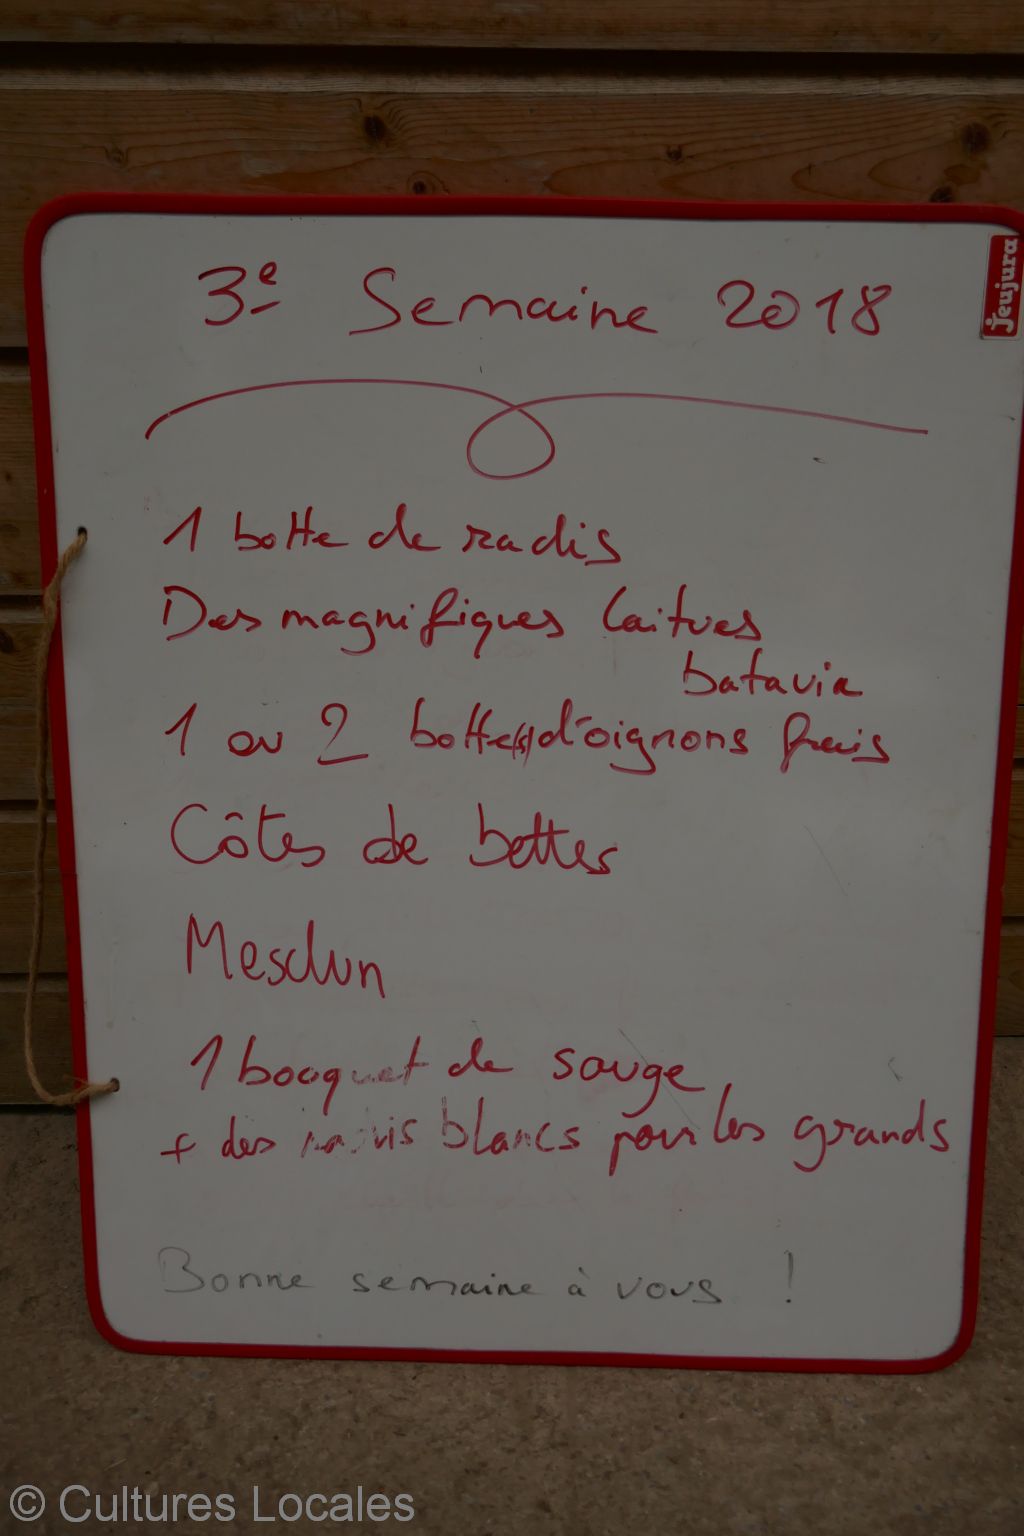 3e Semaine 2018
Jeujura
1 botte de radis
Des magnifiques laitues
batavia
1 ou 2 botte(s) d'oignons frais
Côtes de bettes
Mesclun
1 bouquet de sauge
+ des navis blancs pour les grands
Bonne semaine à vous !
© Cultures Locales